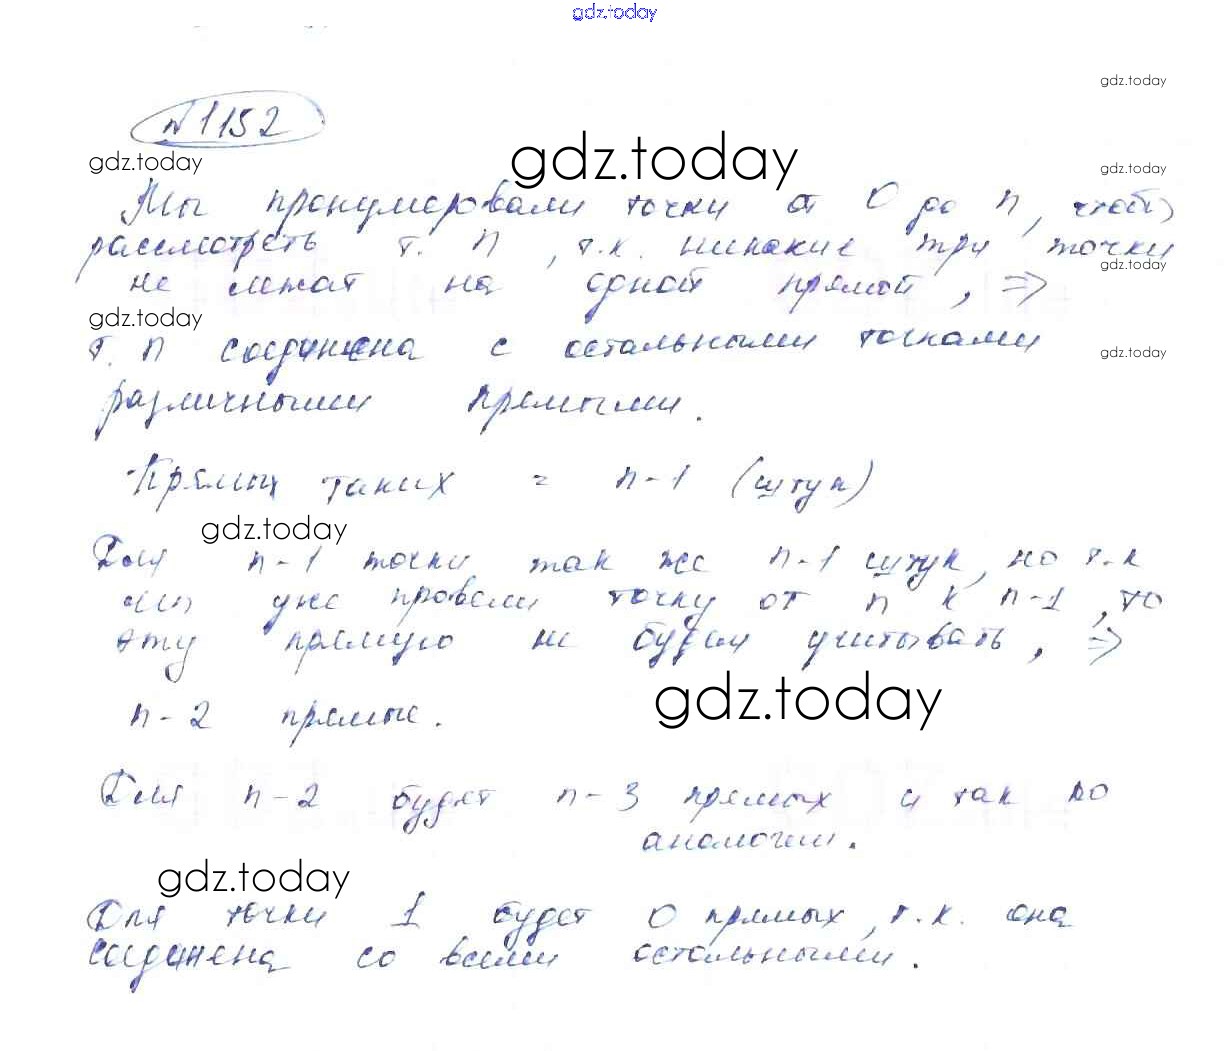 gdz.today
gdz.today
№1152
gdz.today gdz.today gdz.today
Мы пронумеровали точки от 0 до n, чтобы
рассмотреть т. n, т.к. никакие три точки
gdz.today
не лежат на одной прямой, =>
gdz.today
т. n соединена с остальными точками
gdz.today
различными прямыми.
Прямых таких = n-1 (штук)
gdz.today
Для n-1 точки так же n-1 штук, но т.к
мы уже провели точку от n к n-1, то
эту прямую не будем учитывать, =>
gdz.today
n-2 прямые.
Для n-2 будет n-3 прямых и так по
аналогии.
gdz.today
Для точки 1 будет 0 прямых, т.к. она
соединена со всеми остальными.